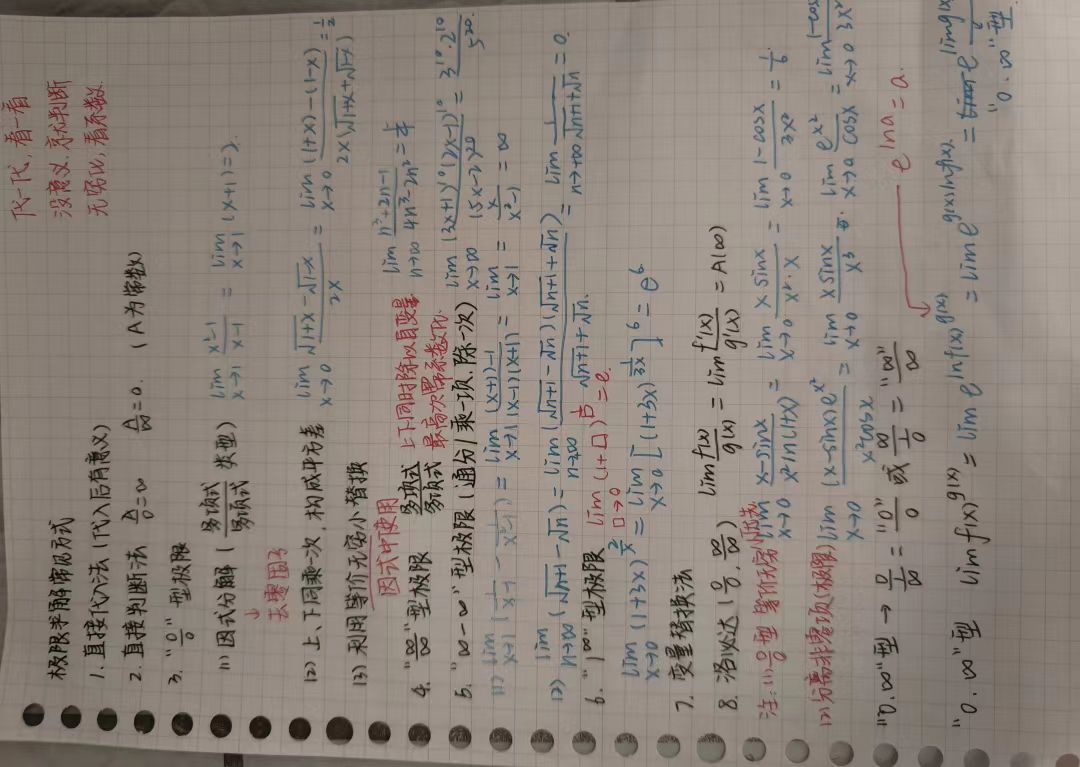 代一代,看一看
没意义,杀死判断
无穷比,看系数
极限求解常见方式
1. 直接代入法(代入后有意义)
2. 直接判断法 A/0=∞ A/∞=0. (A为常数)
3. "0/0"型极限
(1) 因式分解(多项式/多项式 类型) lim x→1 (x²-1)/(x-1) = lim x→1 (x+1)=2.
↓
去零因子
(2) 上、下同乘一次,构成平方差 lim x→0 (√1+x - √1-x)/2x = lim x→0 ((1+x)-(1-x))/(2x(√1+x+√1-x)) = 1/2
(3) 利用等价无穷小替换
因式中使用
4. "∞/∞"型极限 多项式/多项式 上下同时除以自变量最高次幂系数比. lim n→∞ (n³+2n-1)/(4n³-2n² = 1/4
lim x→∞ ((3x+1)¹⁰(2x-1)¹⁰)/(5x-2)²⁰ = (3¹⁰·2¹⁰)/5²⁰
5. "∞-∞"型极限(通分/乘一项,除一次)
(1) lim x→1 (1/(x-1) - 1/(x²-1)) = lim x→1 ((x+1)-1)/((x-1)(x+1)) = lim x→1 = x/(x²-1) = ∞
(2) lim n→∞ (√n+1 - √n) = lim n→∞ ((√n+1 - √n)(√n+1 + √n))/(√n+1 + √n) = lim n→+∞ 1/(√n+1 + √n) = 0.
6. "1^∞"型极限 lim □→0 (1+□)^(1/□) = e.
lim x→0 (1+3x)^(2/x) = lim x→0 [(1+3x)^(1/3x)]⁶ = e⁶
7. 变量替换法
8. 洛必达(0/0, ∞/∞) lim f(x)/g(x) = lim f'(x)/g'(x) = A(∞)
注:(1) 0/0型 等价无穷小优先 lim x→0 (x-sinx)/(x²ln(1+x)) = lim x→0 (x-sinx)/(x²·x) = lim x→0 (1-cosx)/3x² = 1/6
(2) 分离非零项(求极限) lim x→0 ((x-sinx)e^x²)/(x³cosx) = lim x→0 (x-sinx)/x³ · lim x→0 e^x²/cosx = lim x→0 (1-cos/3x²
"0·∞"型 → 0/(1/∞) = "0"/0 或 ∞/(1/0) = "∞"/∞
e^lna = a.
"0·∞"型 lim f(x)^g(x) = lim e^lnf(x)^g(x) = lim e^g(x)lnf(x) = e^lim g(x)
"0·∞"型